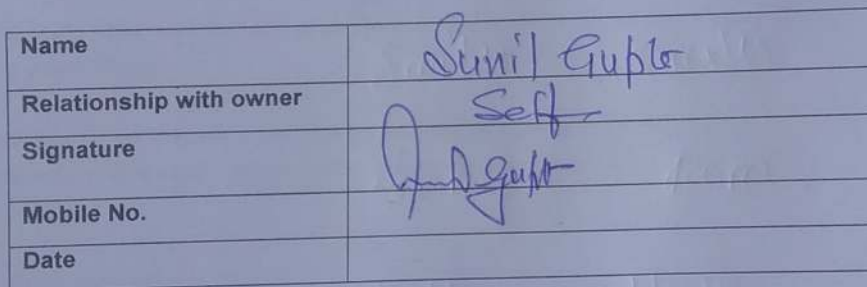 Name Sunil Gupta
Relationship with owner Self
Signature Gupta
Mobile No.
Date